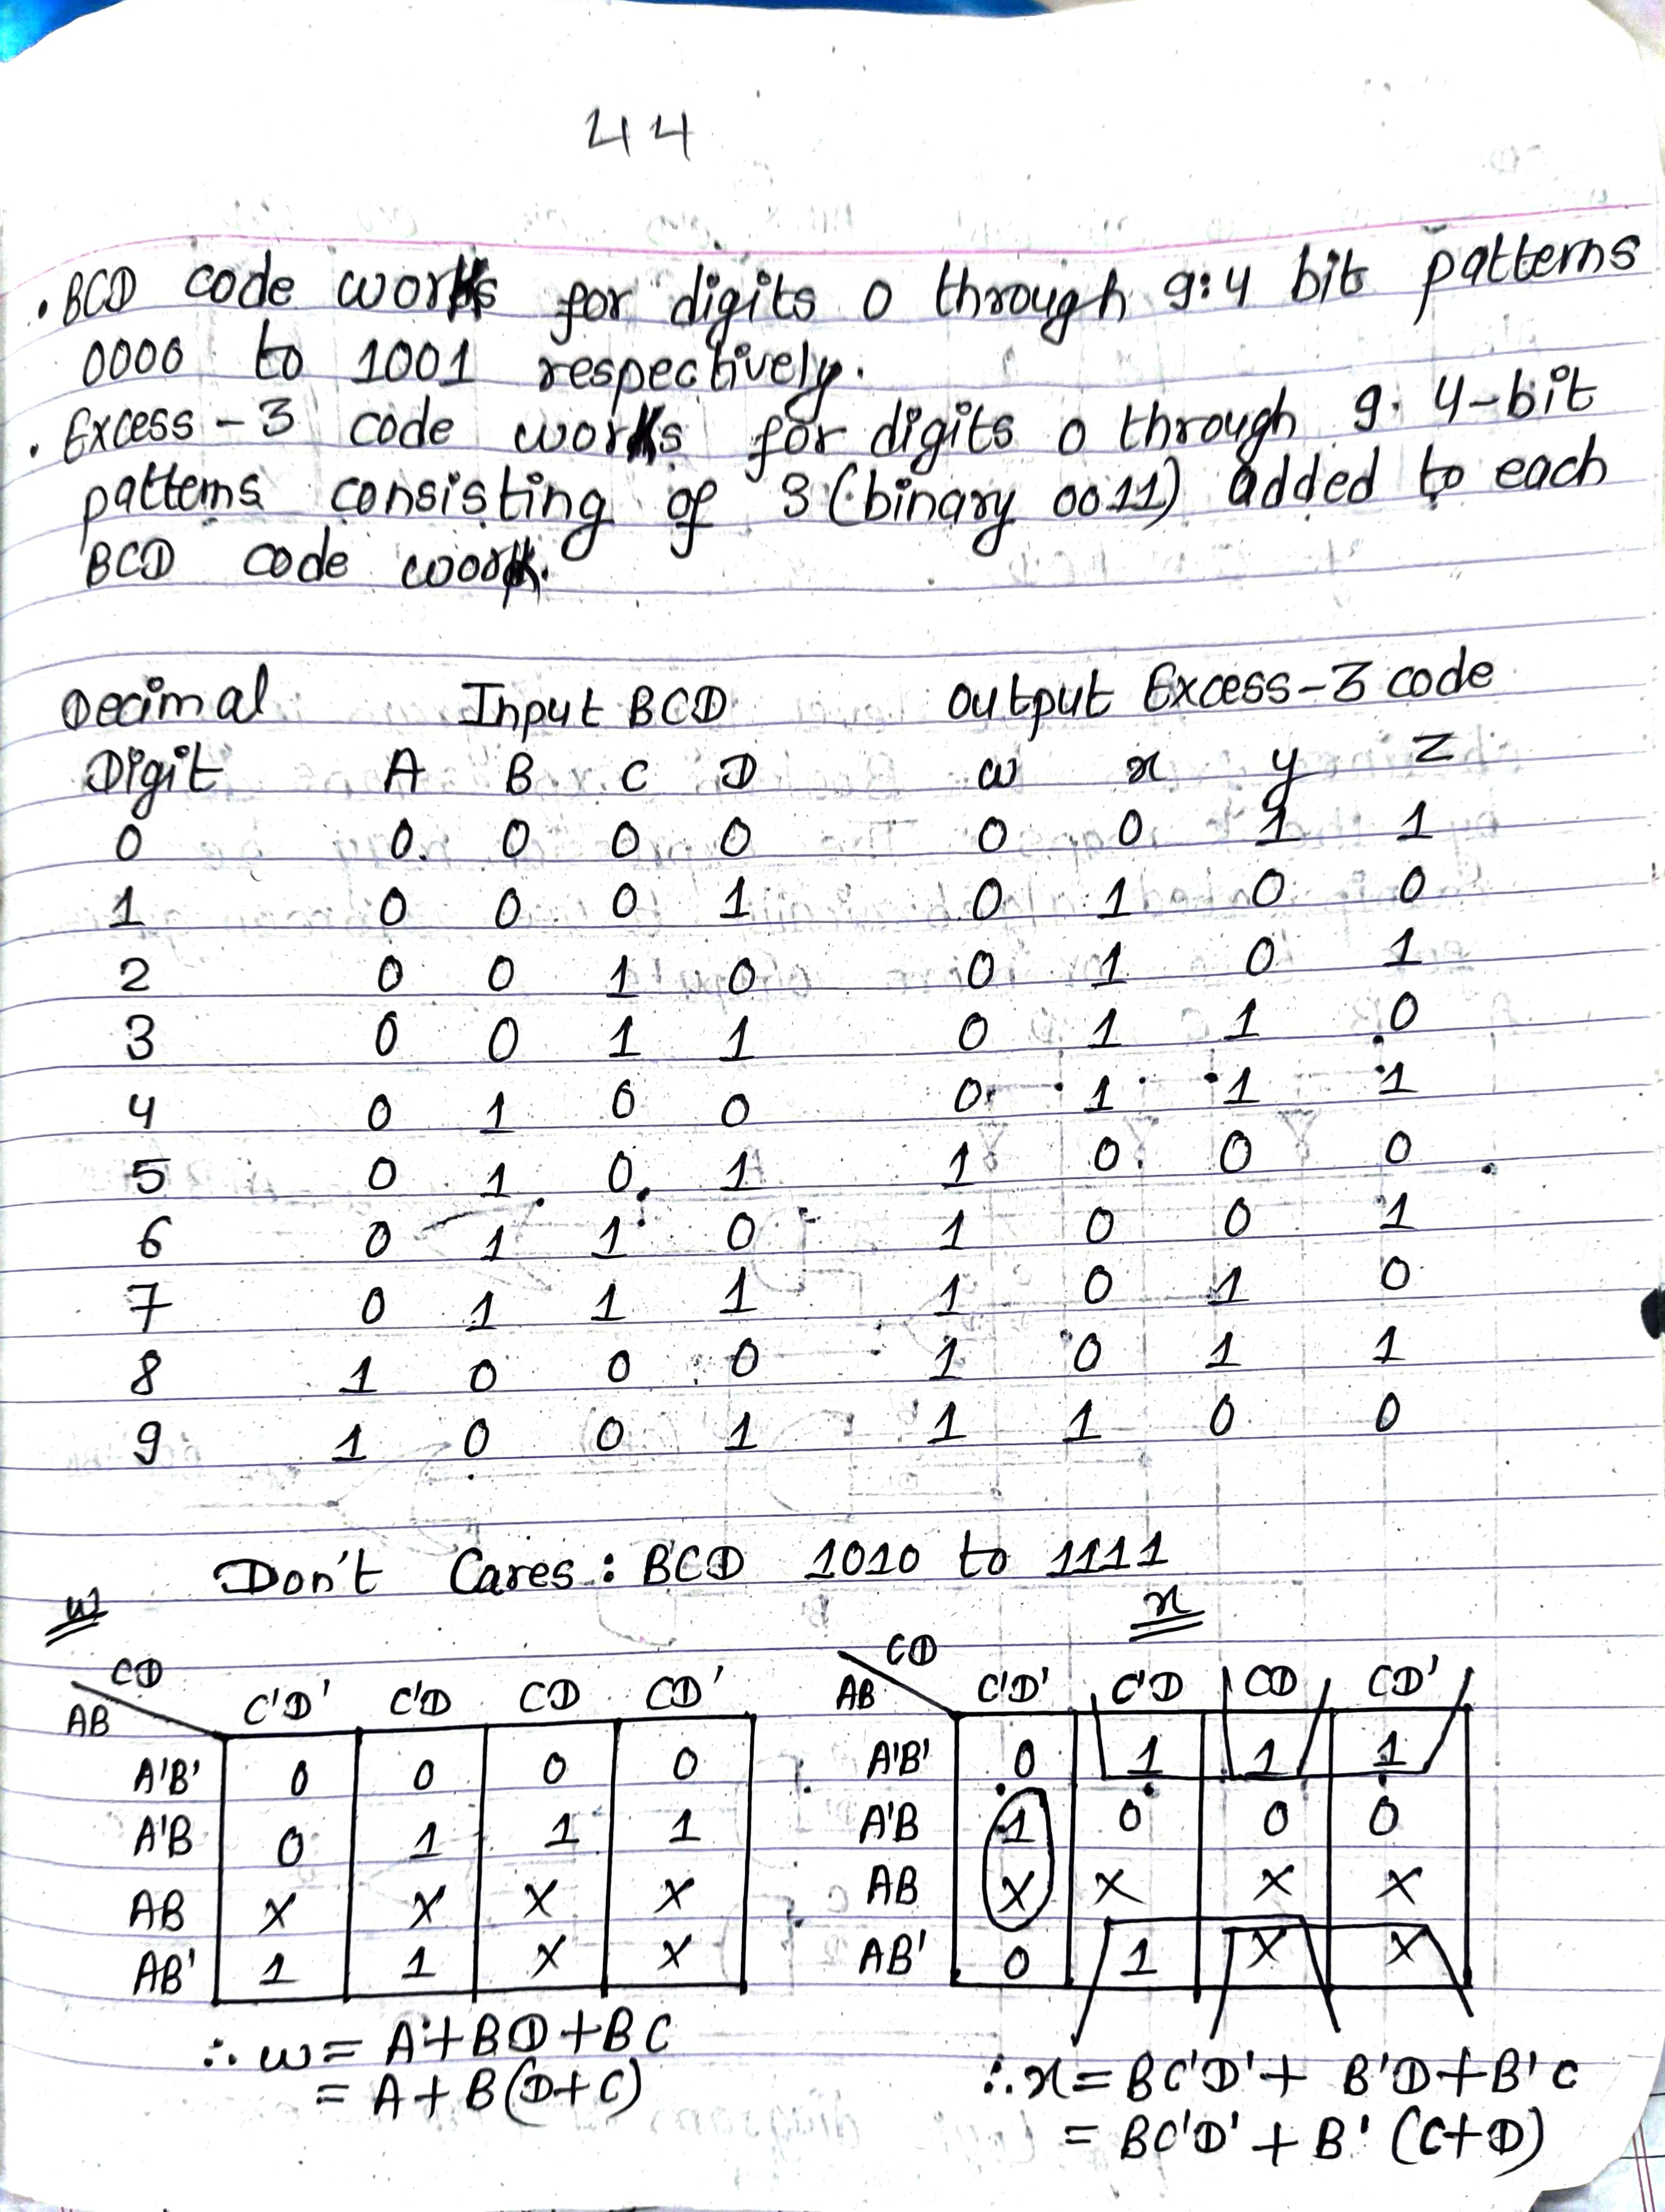 44
• BCD code works for digits 0 through 9: 4 bit patterns
0000 to 1001 respectively.
• Excess-3 code works for digits 0 through 9. 4-bit
patterns consisting of 3 (binary 0011) added to each
BCD code
Decimal Input BCD Output Excess-3 code
Digit A B C D w x y z
0 0 0 0 0 0 0 1 1
1 0 0 0 1 0 1 0 0
2 0 0 1 0 0 1 0 1
3 0 0 1 1 0 1 1 0
4 0 1 0 0 0 1 1 1
5 0 1 0 1 1 0 0 0
6 0 1 1 0 1 0 0 1
7 0 1 1 1 1 0 1 0
8 1 0 0 0 1 0 1 1
9 1 0 0 1 1 1 0 0
Don't Cares: BCD 1010 to 1111
w
CD
AB C'D' C'D CD CD'
A'B' 0 0 0 0
A'B 0 1 1 1
AB X X X X
AB' 1 1 X X
∴ w = A+BD+BC
= A+B(D+C)
x
CD
AB C'D' C'D CD CD'
A'B' 0 1 1 1
A'B 1 0 0 0
AB X X X X
AB' 0 1 X X
∴ x = BC'D' + B'D+B'C
= BC'D' + B' (C+D)